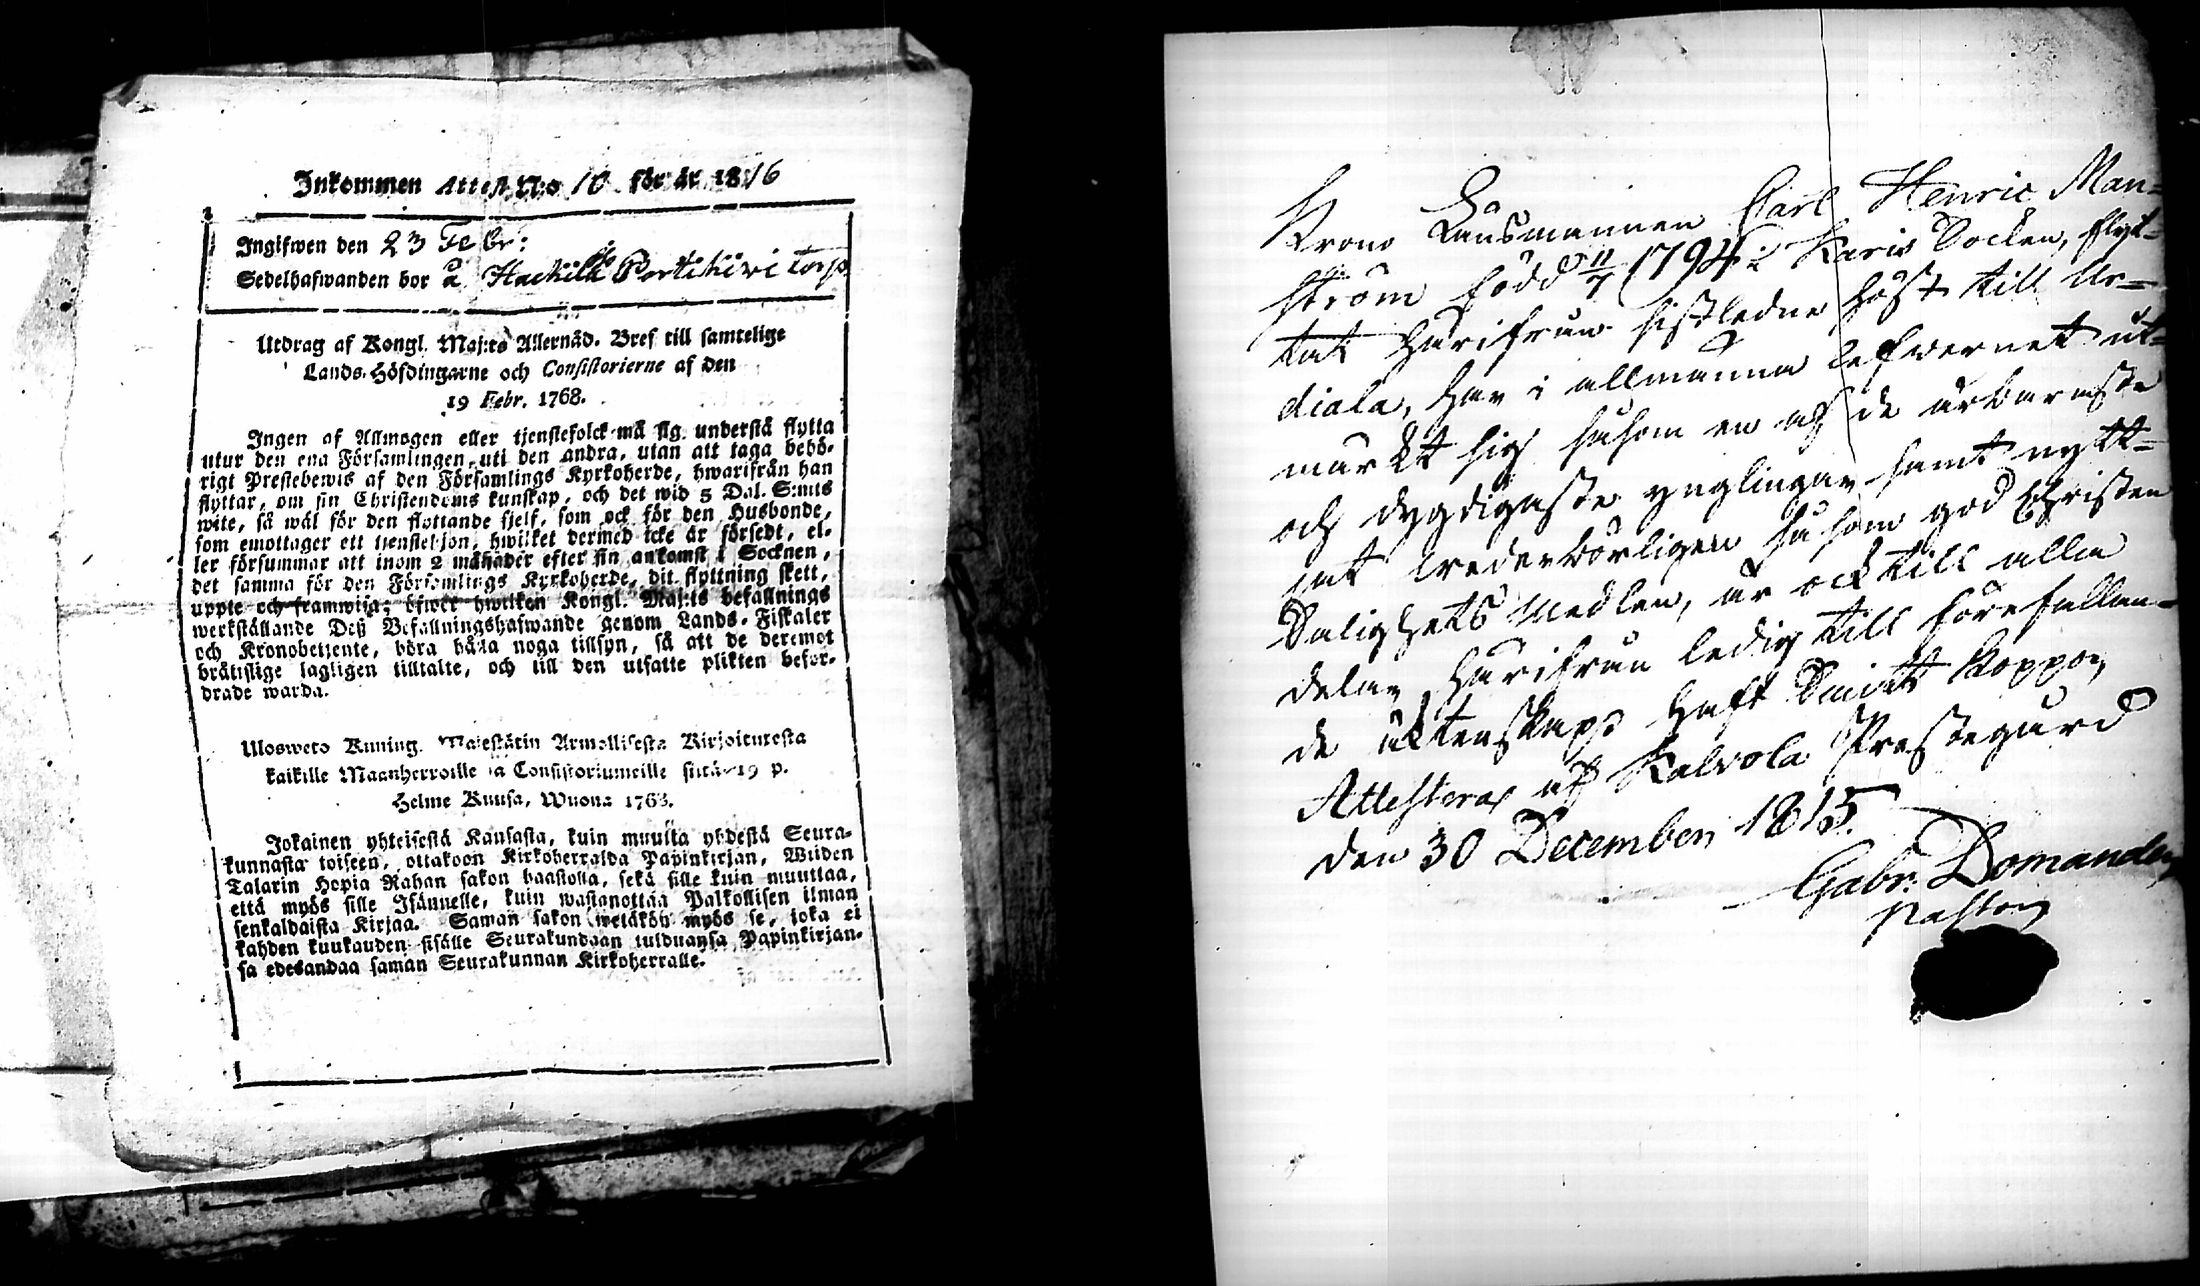 Inkommen Attest N:o 10 för år 1816
Ingifwen den 23 Febr:
Sedelhafwanden bor å Hackila Porttikivi torp
Utdrag af Kongl. Maj:ts Allernåd. Bref till samtelige
Lands-Höfdingarne och Consistorierne af den
19 Febr. 1768.
Ingen af Allmogen eller tjenstefolck må sig understå flytta
utur den ena Församlingen uti den andra, utan att taga behö-
rigt Prestebewis af den Församlings Kyrkoherde, hwarifrån han
flyttar, om sin Christendoms kunskap, och det wid 5 Dal. S:mts
wite, så wäl för den flyttande sjelf, som ock för den Husbonde,
som emottager ett tjenstehjon, hwilket dermed icke är försedt, el-
ler försummar att inom 2 månader efter sin ankomst i Socknen,
det samma för den Församlings Kyrkoherde, dit flyttning skett,
uppte och framwisa; öfwer hwilken Kongl. Maj:ts befallnings
werkställande Deß Befallningshafwande genom Lands-Fiskaler
och Kronobetjente, böra hålla noga tillsyn, så att de deremot
brätslige lagligen tilltalte, och till den utsatte plikten befor-
drade warda.
Ulosweto Kuning. Majestätin Armollisesta Kirjoituxesta
kaikille Maanherroille ja Consistoriumeille siitä 19 p.
Helme Kuusa, Wuona 1768.
Jokainen yhteisestä Kansasta, kuin muutta yhdestä Seura-
kunnasta toiseen, ottakoon Kirkoherralda Papinkirjan, Wiiden
Talarin Hopia Rahan sakon haastolla, sekä sille kuin muuttaa,
että myös sille Isännelle, kuin wastanottaa Palkollisen ilman
senkaldaista Kirjaa. Saman sakon wetäkön myös se, joka ei
kahden kuukauden sisälle Seurakundaan tulduansa Papinkirjan-
sa edesandaa saman Seurakunnan Kirkoherralle.
Krono Länsmannen Carl Henric Man-
ström född d 11/7 1794 i Karis Socken, flyt-
tat härifrån sistledne höst till Ur-
diala, har i allmänna lefwernet ut-
märkt sig såsom en af de ärbaraste
och dygdigaste ynglingar samt nytt-
jat wederbörligen såsom god Christen
Salighets Medlen, är ock till alla
delar härifrån ledig till förefallan-
de äktenskap; haft Smitt Koppor,
Attesteras af Kalvola Prestegård
den 30 December 1815.
Gabr. Domander
Pastor